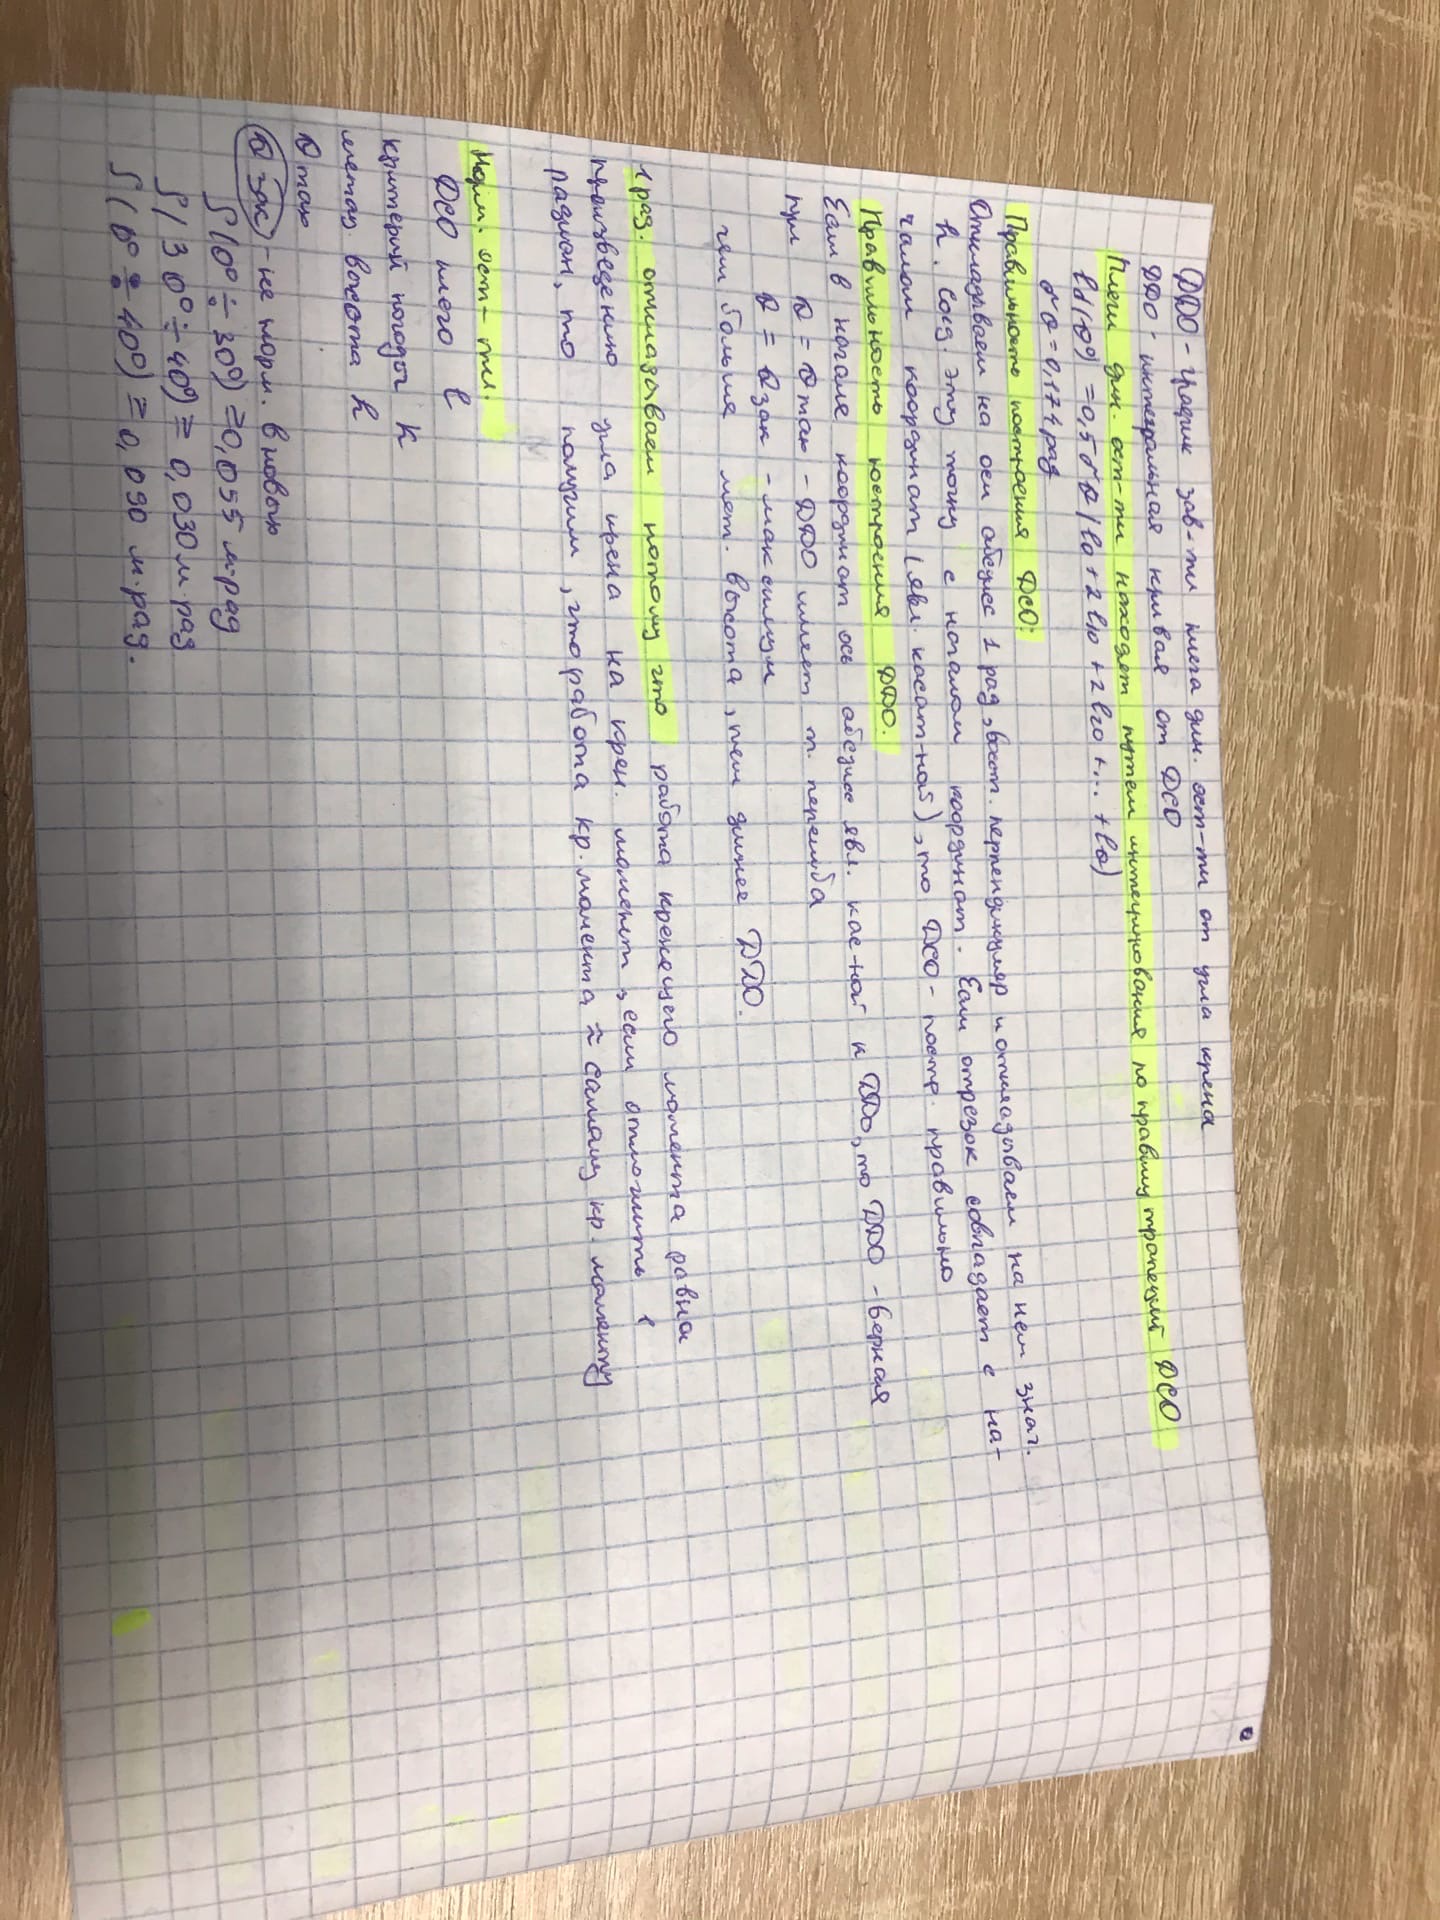 ДДО - график зав-ти плеча дин. ост-ти от угла крена
ДДО - интегральная кривая от ДСО
Плечи дин. ост-ти находят путем интегрирования по правилу трапеций ДСО
ld(θ°) = 0,5 δθ (l0 + 2l10 + 2l20 + ... + lθ)
δθ = 0,174 рад
Правильность построения ДСО:
Откладываем на оси абсцисс 1 рад, восст. перпендикуляр и откладываем на нем знач.
h. Соед. эту точку с началом координат. Если отрезок совпадает с на-
чалом координат (явл. касат-ной), то ДСО - постр. правильно
Правильность построения ДДО.
Если в начале координат ось абсцисс явл. кас-ной к ДДО, то ДДО - верная
при θ = θmax - ДДО имеет т. перегиба
θ = θзак - максимум
чем больше мет. высота, тем длинее ДДО.
1 рад. откладываем потому что работа кренящего момента равна
произведению угла крена на крен. момент, если отложить 1
радиан, то получим, что работа кр. момента ≈ самому кр. моменту
Норм. ост-ти.
ДСО плечо l
критерий погоды K
метац. высота h
θmax
θзак - не норм. в новых
S(0° ÷ 30°) ≥ 0,055 м·рад
S(30° ÷ 40°) ≥ 0,030 м·рад
S(0° ÷ 40°) ≥ 0,090 м·рад.